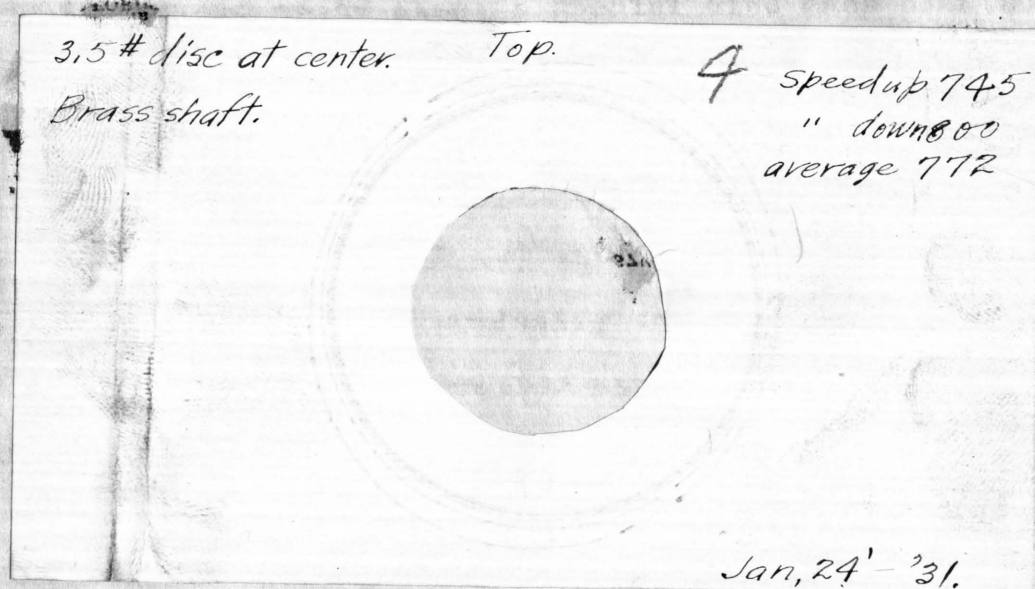 3.5 # disc at center.
Brass shaft.
Top.
4
Speed up 745
" down 800
average 772
Jan, 24' - '31.